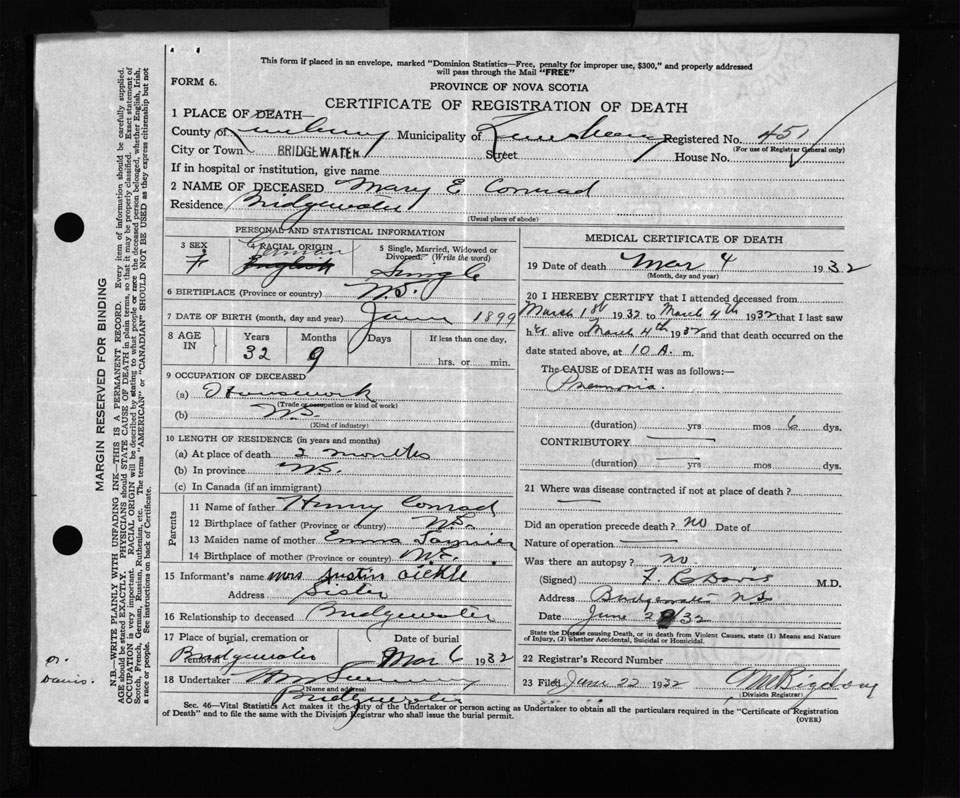 This form if placed in an envelope, marked "Dominion Statistics—Free, penalty for improper use, $300," and properly addressed
will pass through the Mail "FREE"
FORM 6.
PROVINCE OF NOVA SCOTIA
CERTIFICATE OF REGISTRATION OF DEATH
1 PLACE OF DEATH—
County of Lunenburg Municipality of Lunenburg Registered No. 451
(For use of Registrar General only)
City or Town BRIDGEWATER Street House No.
If in hospital or institution, give name
2 NAME OF DECEASED Mary E Conrad
Residence Bridgewater
(Usual place of abode)
PERSONAL AND STATISTICAL INFORMATION
3 SEX
F
4 RACIAL ORIGIN
German
English
5 Single, Married, Widowed or Divorced. (Write the word)
Single
6 BIRTHPLACE (Province or country) N.S.
7 DATE OF BIRTH (month, day and year) June 1899
8 AGE IN
Years Months Days If less than one day,
32 9
hrs. or min.
9 OCCUPATION OF DECEASED
(a) Housework
(Trade or occupation or kind of work)
(b) N.S.
(Kind of industry)
10 LENGTH OF RESIDENCE (in years and months)
(a) At place of death 2 months
(b) In province N.S.
(c) In Canada (if an immigrant)
Parents
11 Name of father Henry Conrad
12 Birthplace of father (Province or country) N.S.
13 Maiden name of mother Emma
14 Birthplace of mother (Province or country) N.S.
15 Informant's name Mrs Austin Oickle
Address Sister
16 Relationship to deceased Bridgewater
17 Place of burial, cremation or removal
Bridgewater
Date of burial
Mar 6 1932
18 Undertaker Wm
(Name and address)
Bridgewater
MEDICAL CERTIFICATE OF DEATH
19 Date of death Mar 4 1932
(Month, day and year)
20 I HEREBY CERTIFY that I attended deceased from
March 1st 1932 to March 4th 1932 that I last saw
her alive on March 4th 1932 and that death occurred on the
date stated above, at 10 A. m.
The CAUSE of DEATH was as follows:—
Pnemonia.
(duration) yrs mos 6 dys.
CONTRIBUTORY
(duration) yrs. mos dys.
21 Where was disease contracted if not at place of death?
Did an operation precede death? no Date of
Nature of operation
Was there an autopsy? no
(Signed) F. R. Davis M.D.
Address Bridgewater NS
Date June 2 /32
State the Disease causing Death, or in death from Violent Causes, state (1) Means and Nature
of Injury, (2) whether Accidental, Suicidal or Homicidal.
22 Registrar's Record Number
23 Filed June 22 1932
(Division Registrar)
Sec. 46—Vital Statistics Act makes it the duty of the Undertaker or person acting as Undertaker to obtain all the particulars required in the "Certificate of Registration
of Death" and to file the same with the Division Registrar who shall issue the burial permit.
(OVER)
MARGIN RESERVED FOR BINDING
N.B.—WRITE PLAINLY WITH UNFADING INK—THIS IS A PERMANENT RECORD. Every item of information should be carefully supplied.
AGE should be stated EXACTLY. PHYSICIANS should STATE CAUSE OF DEATH in plain terms, so that it may be properly classified. Exact statement of
OCCUPATION is very important. RACIAL ORIGIN will be described by stating to what people or race the deceased person belonged, whether English, Irish,
Scotch, French, German, Russian, Ruthenian, etc. The terms "AMERICAN" or "CANADIAN" SHOULD NOT BE USED as they express citizenship but not
a race or people. See instructions on back of Certificate.
Dr.
Davis.